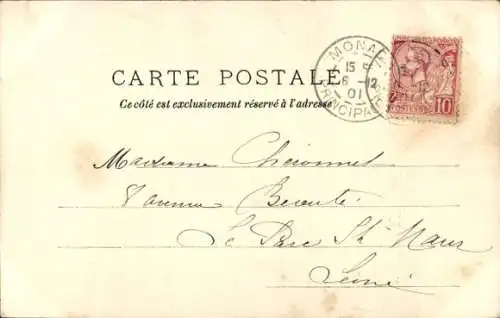 CARTE POSTALE
Ce côté est exclusivement réservé à l'adresse
MONACO
15
6 -12
01
PRINCIPAUTÉ
10
Madame Cheronnet
8 avenue
Le Parc St Maur
Seine